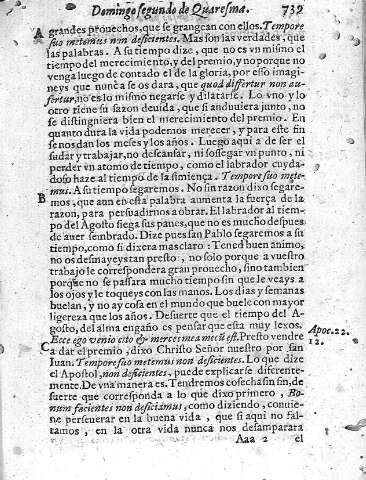 Domingo segundo de Quaresma. 739
A grandes prouechos, que se grangean con ellos. Tempore
suo metemus non deficientes. Mas son las verdades, que
las palabras. A su tiempo dize, que no es vn mismo el
tiempo del merecimiento, y del premio, y no porque no
venga luego de contado el de la gloria, por esso imagi-
neys que nunca se os dara, que quod differtur non au-
fertur, no es lo mismo negarse y dilatarse. Lo vno y lo
otro tiene su sazon deuida, que si anduuiera junto, no
se distinguiera bien el merecimiento del premio. En
quanto dura la vida podemos merecer, y para este fin
se nos dan los meses y los años. Luego aqui a de ser el
sudar y trabajar, no descansar, ni sossegar vn punto, ni
perder vn atomo de tiempo, como el labrador cuyda-
doso haze al tiempo de la simiença. Tempore suo mete-
mus. A su tiempo segaremos. No sin razon dixo segare-
B mos, que aun en esta palabra aumenta la fuerça de la
razon, para persuadirnos a obrar. El labrador al tiem-
po del Agosto siega sus panes, que no es mucho despues
de auer sembrado. Dize pues san Pablo segaremos a su
tiempo, como si dixera mas claro: Tened buen animo,
no os desmayeys tan presto, no solo porque a vuestro
trabajo le correspondera gran prouecho, sino tambien
porque no se passara mucho tiempo sin que le veays a
los ojos y le toqueys con las manos. Los dias y semanas
buelan, y no ay cosa en el mundo que buele con mayor
ligereza que los años. Desuerte que el tiempo del A-
gosto, del alma engaño es pensar que esta muy lexos.
Ecce ego venio cito & merces mea mecū est. Presto vendre
Apoc. 22.
12.
C a dar el premio, dixo Christo Señor nuestro por san
Iuan. Tempore suo metemus non deficientes. Lo que dize
el Apostol, non deficientes, puede explicarse diferente-
mente. De vna manera es. Tendremos cosecha sin fin, de
suerte que corresponda a lo que dixo primero, Bo-
num facientes non deficiamus, como diziendo, conuie-
ne perseuerar en la buena vida, que si aqui no fal-
tamos, en la otra vida nunca nos desamparara
Aaa 2 el